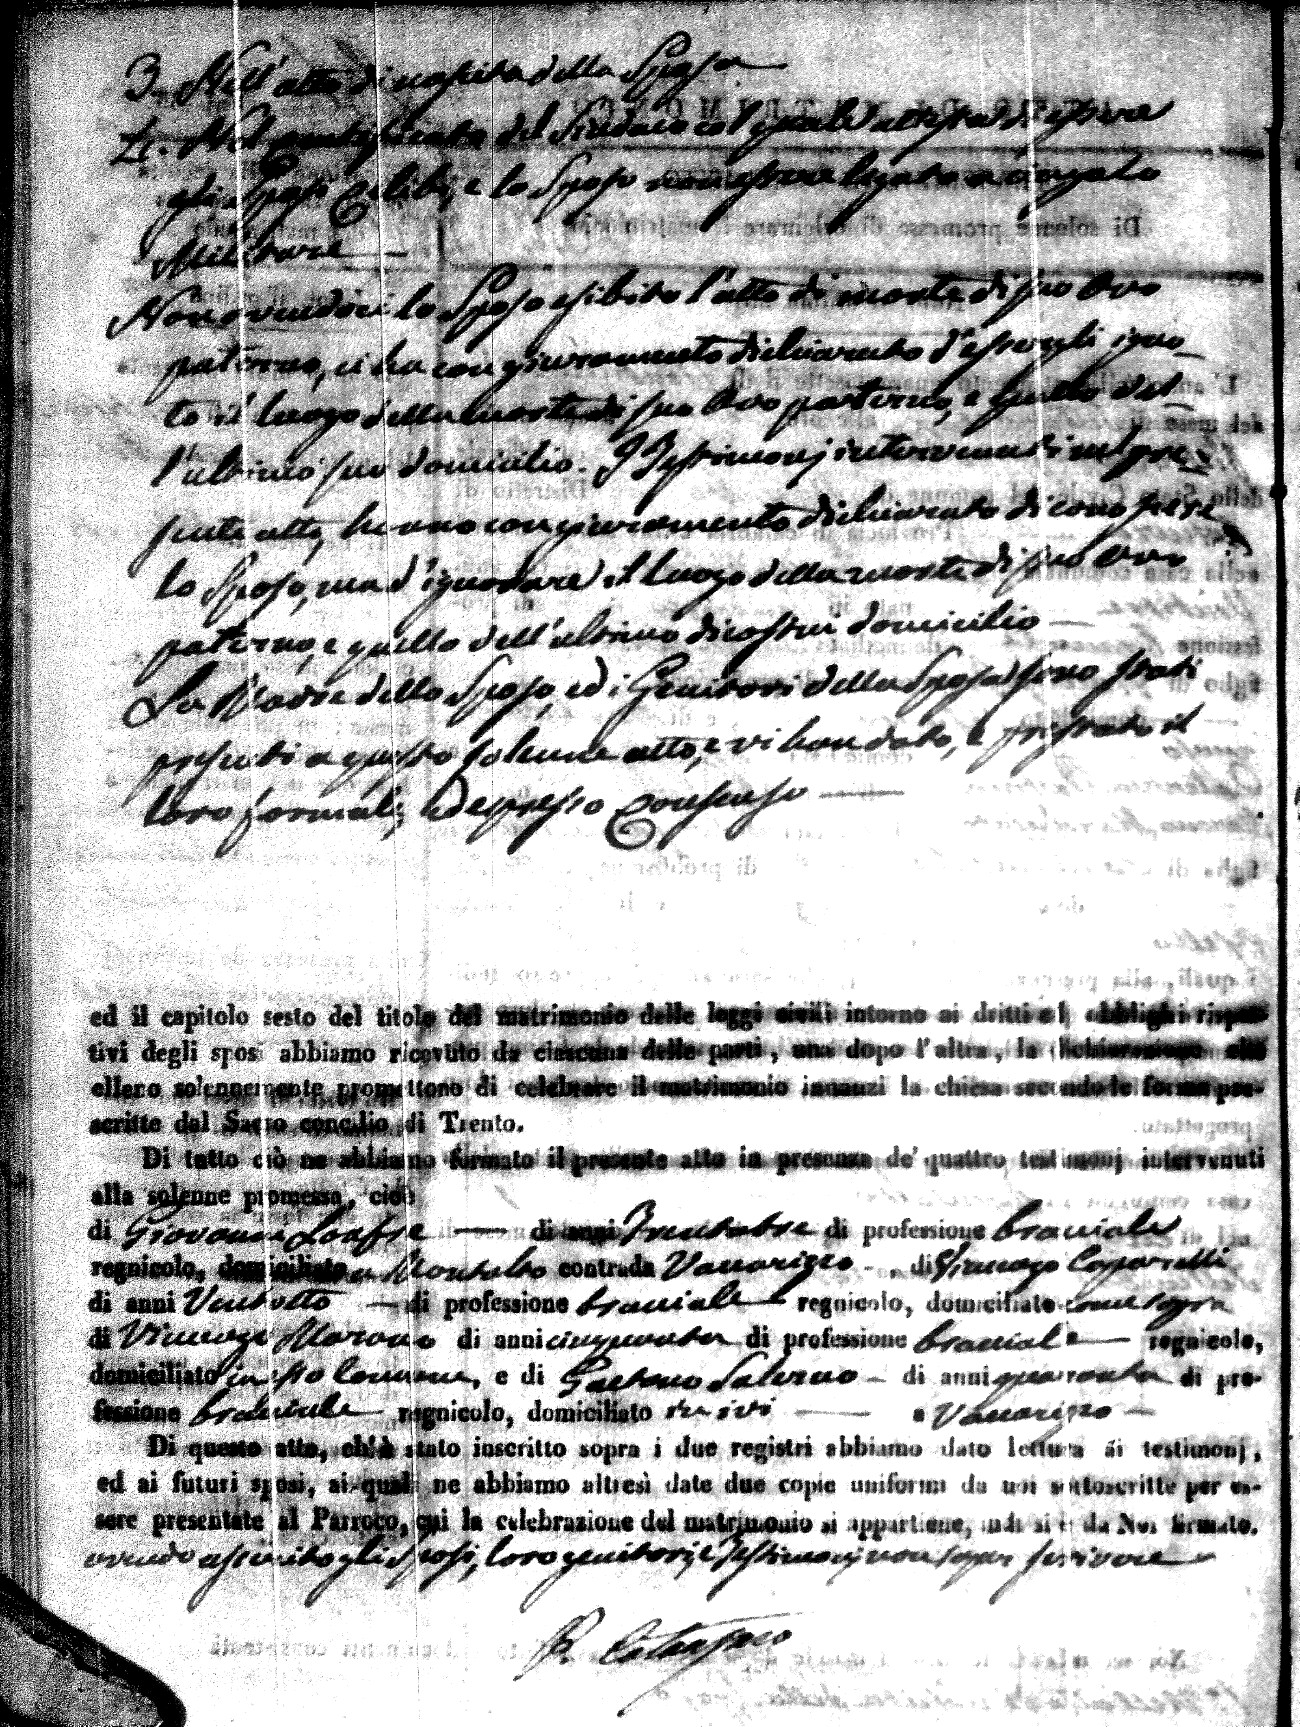 3. Nell'atto di nascita della Sposa
4. Nel certificato del Sindaco col quale attesta di essere
gli Sposi celibi, e lo Sposo non essere legato a cingolo
Militare
Non avendoci lo Sposo esibito l'atto di morte di suo Avo
paterno, ci ha con giuramento dichiarato d'essergli igno-
to il luogo della morte di suo Avo paterno, e quello del-
l'ultimo suo domicilio. I Testimonj intervenuti nel pre-
sente atto, hanno con giuramento dichiarato di conoscere
lo Sposo, ma d'ignorare il luogo della morte di suo Avo
paterno, e quello dell'ultimo di costui domicilio
La Madre dello Sposo, ed i Genitori della Sposa sono stati
presenti a questo solenne atto, e vi han dato, e prestato il
loro formale, ed espresso consenso
ed il capitolo sesto del titolo del matrimonio delle leggi civili intorno ai dritti ed obblighi rispet-
tivi degli sposi abbiamo ricevuto da ciascuna delle parti, una dopo l'altra, la dichiarazione che
elleno solennemente promettono di celebrare il matrimonio innanzi la chiesa secondo le forme pre-
scritte dal Sacro concilio di Trento.
Di tutto ciò ne abbiamo formato il presente atto in presenza de' quattro testimonj intervenuti
alla solenne promessa, cioè
di Giovanni Loafre di anni Trentatre di professione bracciale
regnicolo, domiciliato a Montalto contrada Vaccarizzo, di Francesco Caparelli
di anni Ventotto di professione bracciale regnicolo, domiciliato come sopra
di Vincenzo Morano di anni cinquanta di professione bracciale regnicolo,
domiciliato in esso Comune, e di Gaetano Salerno di anni quaranta di pro-
fessione bracciale regnicolo, domiciliato ivi a Vaccarizzo
Di questo atto, ch'è stato inscritto sopra i due registri abbiamo dato lettura ai testimonj,
ed ai futuri sposi, ai quali ne abbiamo altresì date due copie uniformi da noi sottoscritte per es-
sere presentate al Parroco, cui la celebrazione del matrimonio si appartiene, indi si è da Noi firmato.
avendo asserito gli Sposi, loro genitori, e Testimonj non saper scrivere